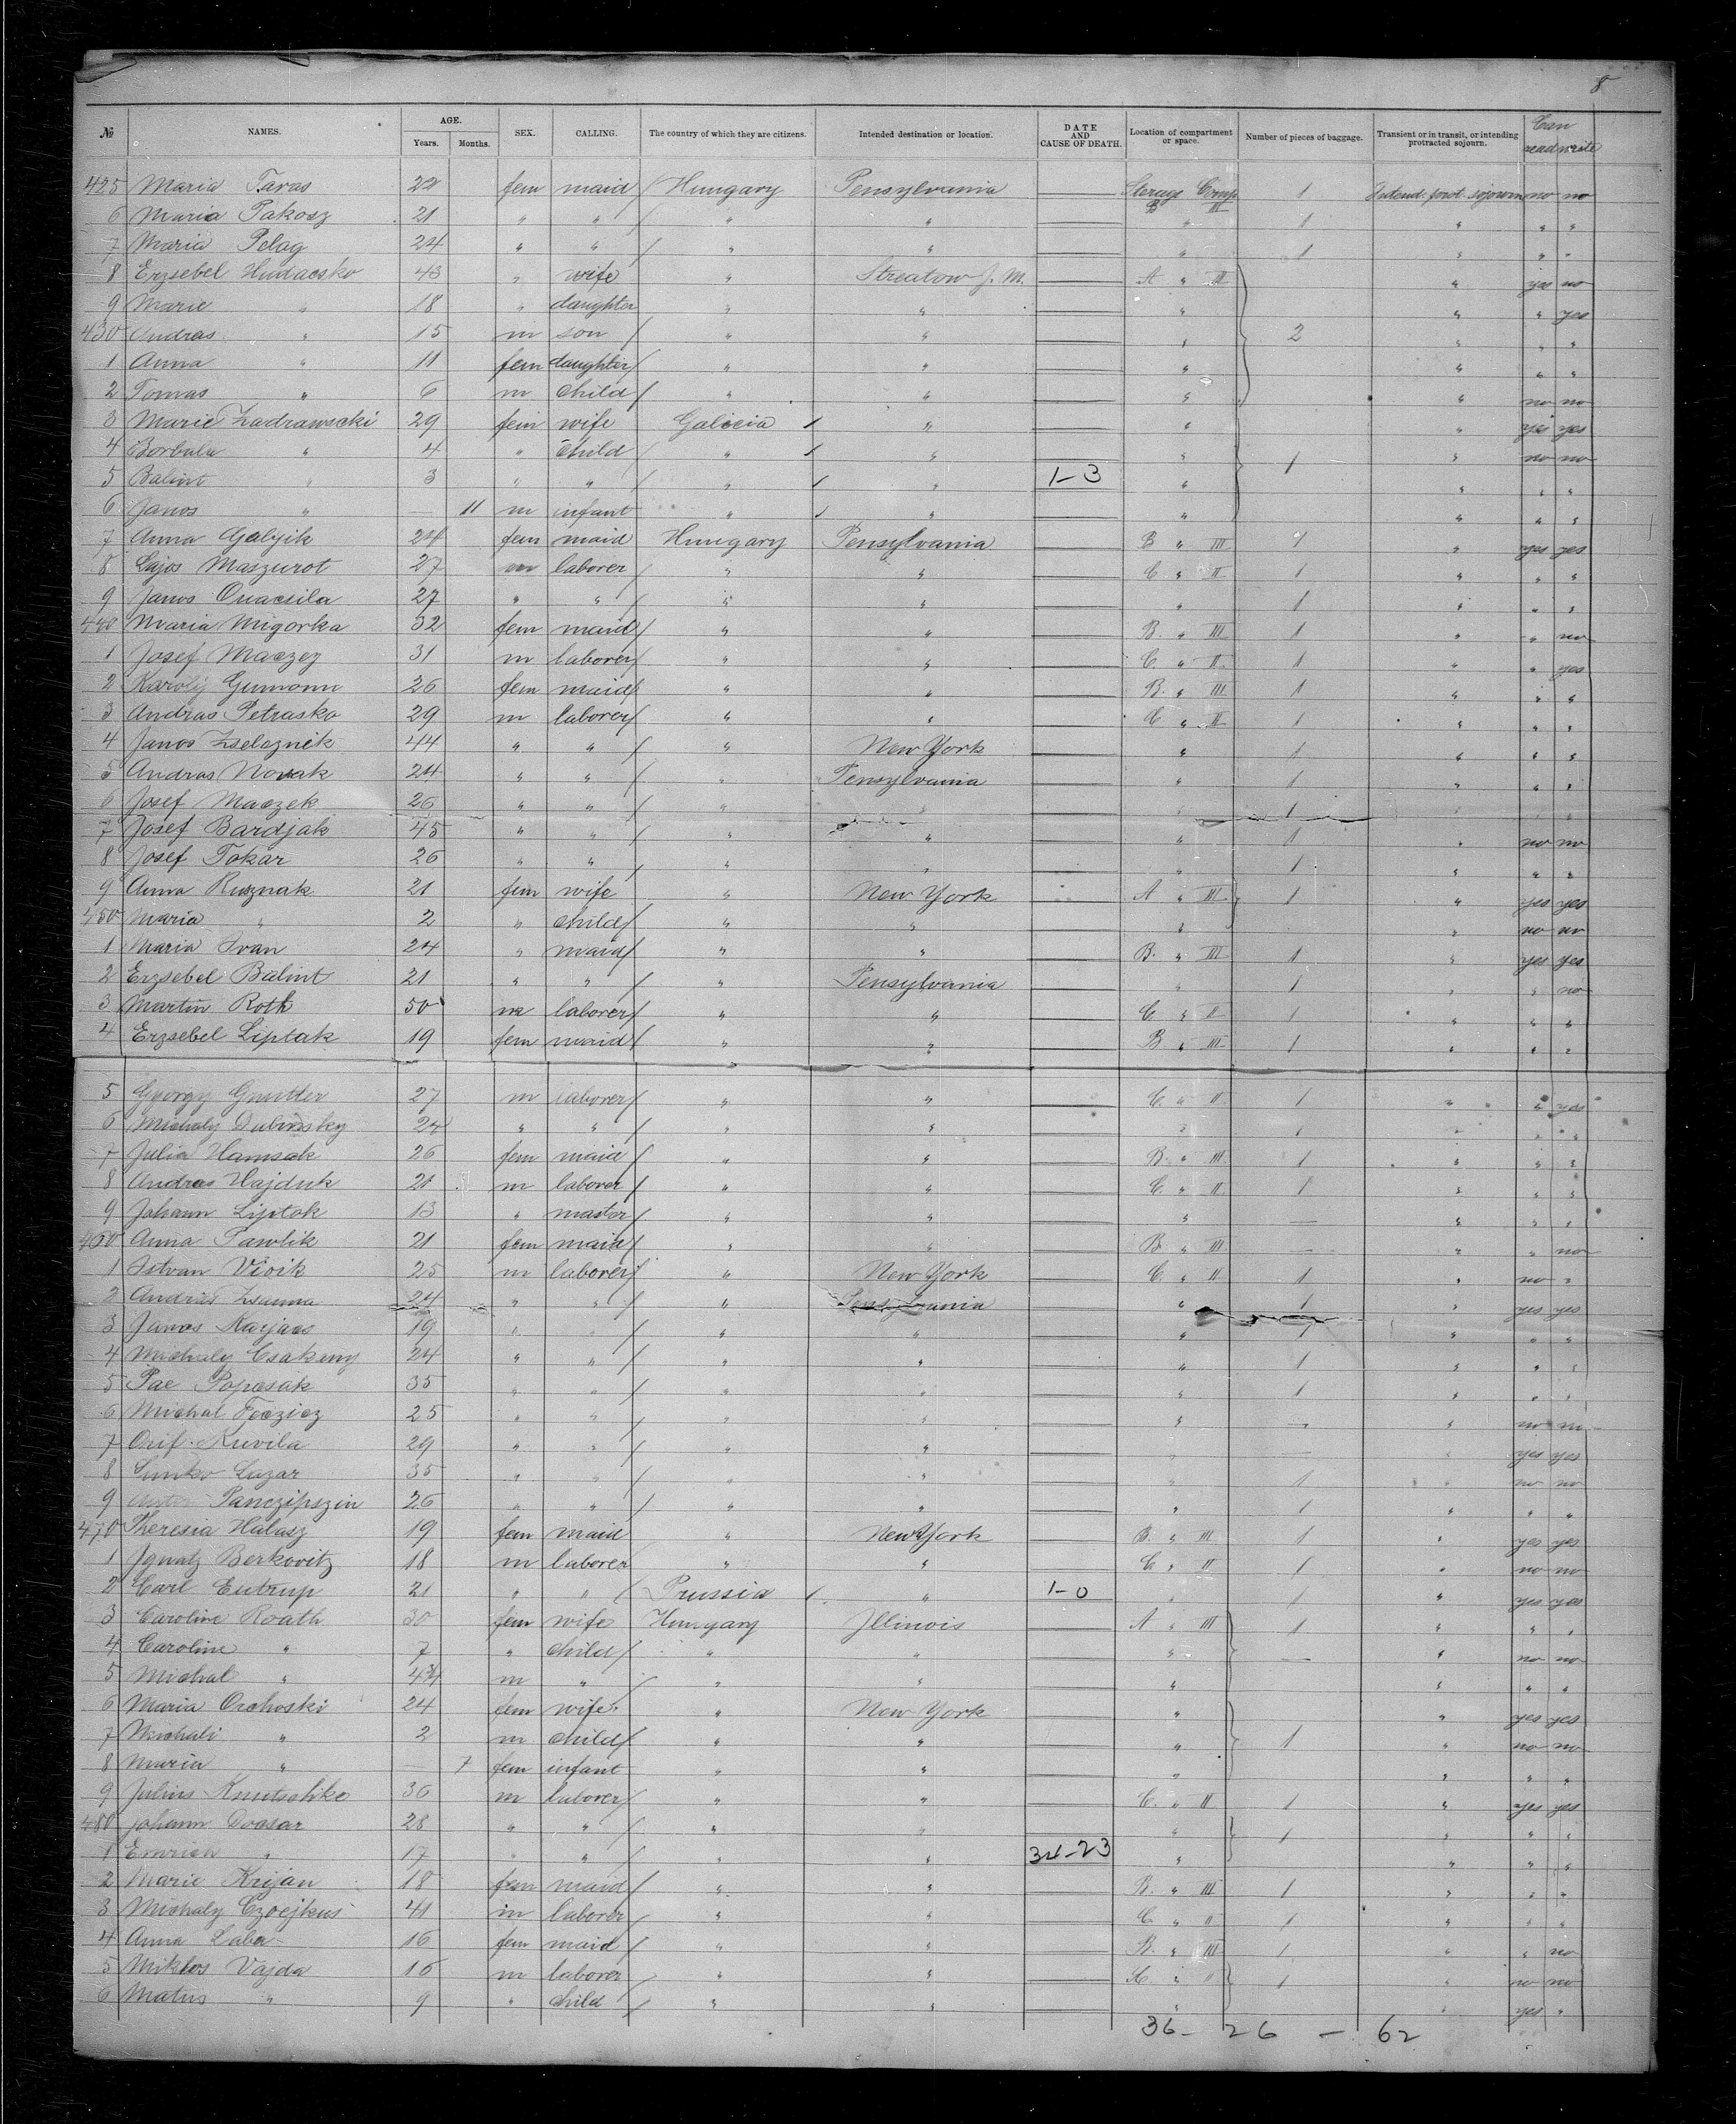 8
№ NAMES. AGE. Years. Months. SEX. CALLING. The country of which they are citizens. Intended destination or location. DATE AND CAUSE OF DEATH. Location of compartment or space. Number of pieces of baggage. Transient or in transit, or intending protracted sojourn. Can read write
425 Maria Taras 22 fem maid / Hungary Pensylvania Sterage Comp. 1 Intend. prot. sojourn no no
6 Maria Pakosz 21 " " / " " B " III 1 " " "
7 Maria Pelag 24 " " / " " " 1 " " "
8 Erzsebel Hudacsko 43 " wife " Streatow J. M. A " II " yes no
9 Marie " 18 " daughter " " " " " yes
430 Andras " 15 m son / " " " 2 " " "
1 Anna " 11 fem daughter / " " " " " "
2 Tomas " 6 m child / " " " " no no
3 Marie Zadrawscki 29 fem wife Galicia / " " " yes yes
4 Borbala " 4 " child " / " " 1 " no no
5 Balint " 3 " " " / " 1-3 " " " "
6 Janos " — 11 m infant " / " " " " "
7 Anna Galyik 24 fem maid Hungary Pensylvania B " III 1 " yes yes
8 Lajos Maszurot 27 m laborer / " " C " II 1 " " "
9 Janos Onacsila 27 " " / " " " 1 " " "
440 Maria Migorka 32 fem maid / " " B. " III 1 " " no
1 Josef Maczez 31 m laborer / " " C. " II 1 " " yes
2 Karolij Gumann 26 fem maid / " " B. " III 1 " " "
3 Andras Petrasko 29 m laborer / " " C " II 1 " " "
4 Janos Zseleznik 44 " " / " New York " 1 " " "
5 Andras Novak 24 " " / " Pensylvania " 1 " " "
6 Josef Maczek 26 " " / " " " 1 " " "
7 Josef Bardjak 45 " " / " " " 1 " no no
8 Josef Tokar 26 " " / " " " 1 " " "
9 Anna Rusznak 21 fem wife " New York A " III 1 " yes yes
450 Maria " 2 " child / " " " " no no
1 Maria Ivan 24 " maid / " " B. " III 1 " yes yes
2 Erzsebel Balint 21 " " / " Pensylvania " 1 " " no
3 Martin Roth 50 m laborer / " " C " II 1 " " "
4 Erzsebel Liptak 19 fem maid / " " B " III 1 " " "
5 Gyorgy Gunttler 27 m laborer / " " C. " II 1 " " yes
6 Michaly Dubinsky 24 " " / " " " 1 " " "
7 Julia Hamsak 26 fem maid / " " B. " III 1 " " "
8 Andras Hajduk 21 m laborer / " " C. " II 1 " " "
9 Johann Liptak 13 " master / " " " — " " "
460 Anna Pawlik 21 fem maid / " " B " III — " " no
1 Istvan Vioik 25 m laborer / " New York C. " II 1 " no "
2 Andras Zsanna 24 " " / " Pensylvania " 1 " yes yes
3 Janos Karjacs 19 " " / " " " 1 " " "
4 Michaly Csakany 24 " " / " " " 1 " " "
5 Pae Popcsak 35 " " / " " " 1 " " "
6 Michal Feczicz 25 " " / " " " — " no no
7 Onif. Kuvila 29 " " / " " " — " yes yes
8 Simko Lazar 35 " " / " " " 1 " no no
9 Panczipszin 26 " " / " " " 1 " " "
470 Theresia Halasz 19 fem maid " New York B. " III 1 " yes yes
1 Ignatz Berkovitz 18 m laborer " " C " II 1 " no no
2 Carl Eutrup 21 " " / Prussia / " 1-0 " 1 " yes yes
3 Caroline Roath 30 fem wife Hungary Illinois A " III 1 " " "
4 Caroline " 7 " child / " " " — " no no
5 Michal " m " / " " " " " "
6 Maria Orchoski 24 fem wife " New York " " yes yes
7 Michali " 2 m child / " " " 1 " no no
8 Maria " — 7 fem infant " " " " " "
9 Julius Knutschke 36 m laborer / " " C. " II 1 " yes yes
480 Johann Doosar 28 " " / " " " 1 " " "
1 Emrich " 17 " " / " " 34-23 " " " "
2 Marie Krijan 18 fem maid / " " B. " III 1 " " "
3 Michaly Czoejkus 41 m laborer " " C " II 1 " " "
4 Anna Laba 16 fem maid / " " B. " III 1 " " no
5 Miklos Vajda 16 m laborer " " " II 1 " no no
6 Matus " 9 " child / " " " " yes "
36 - 26 — 62